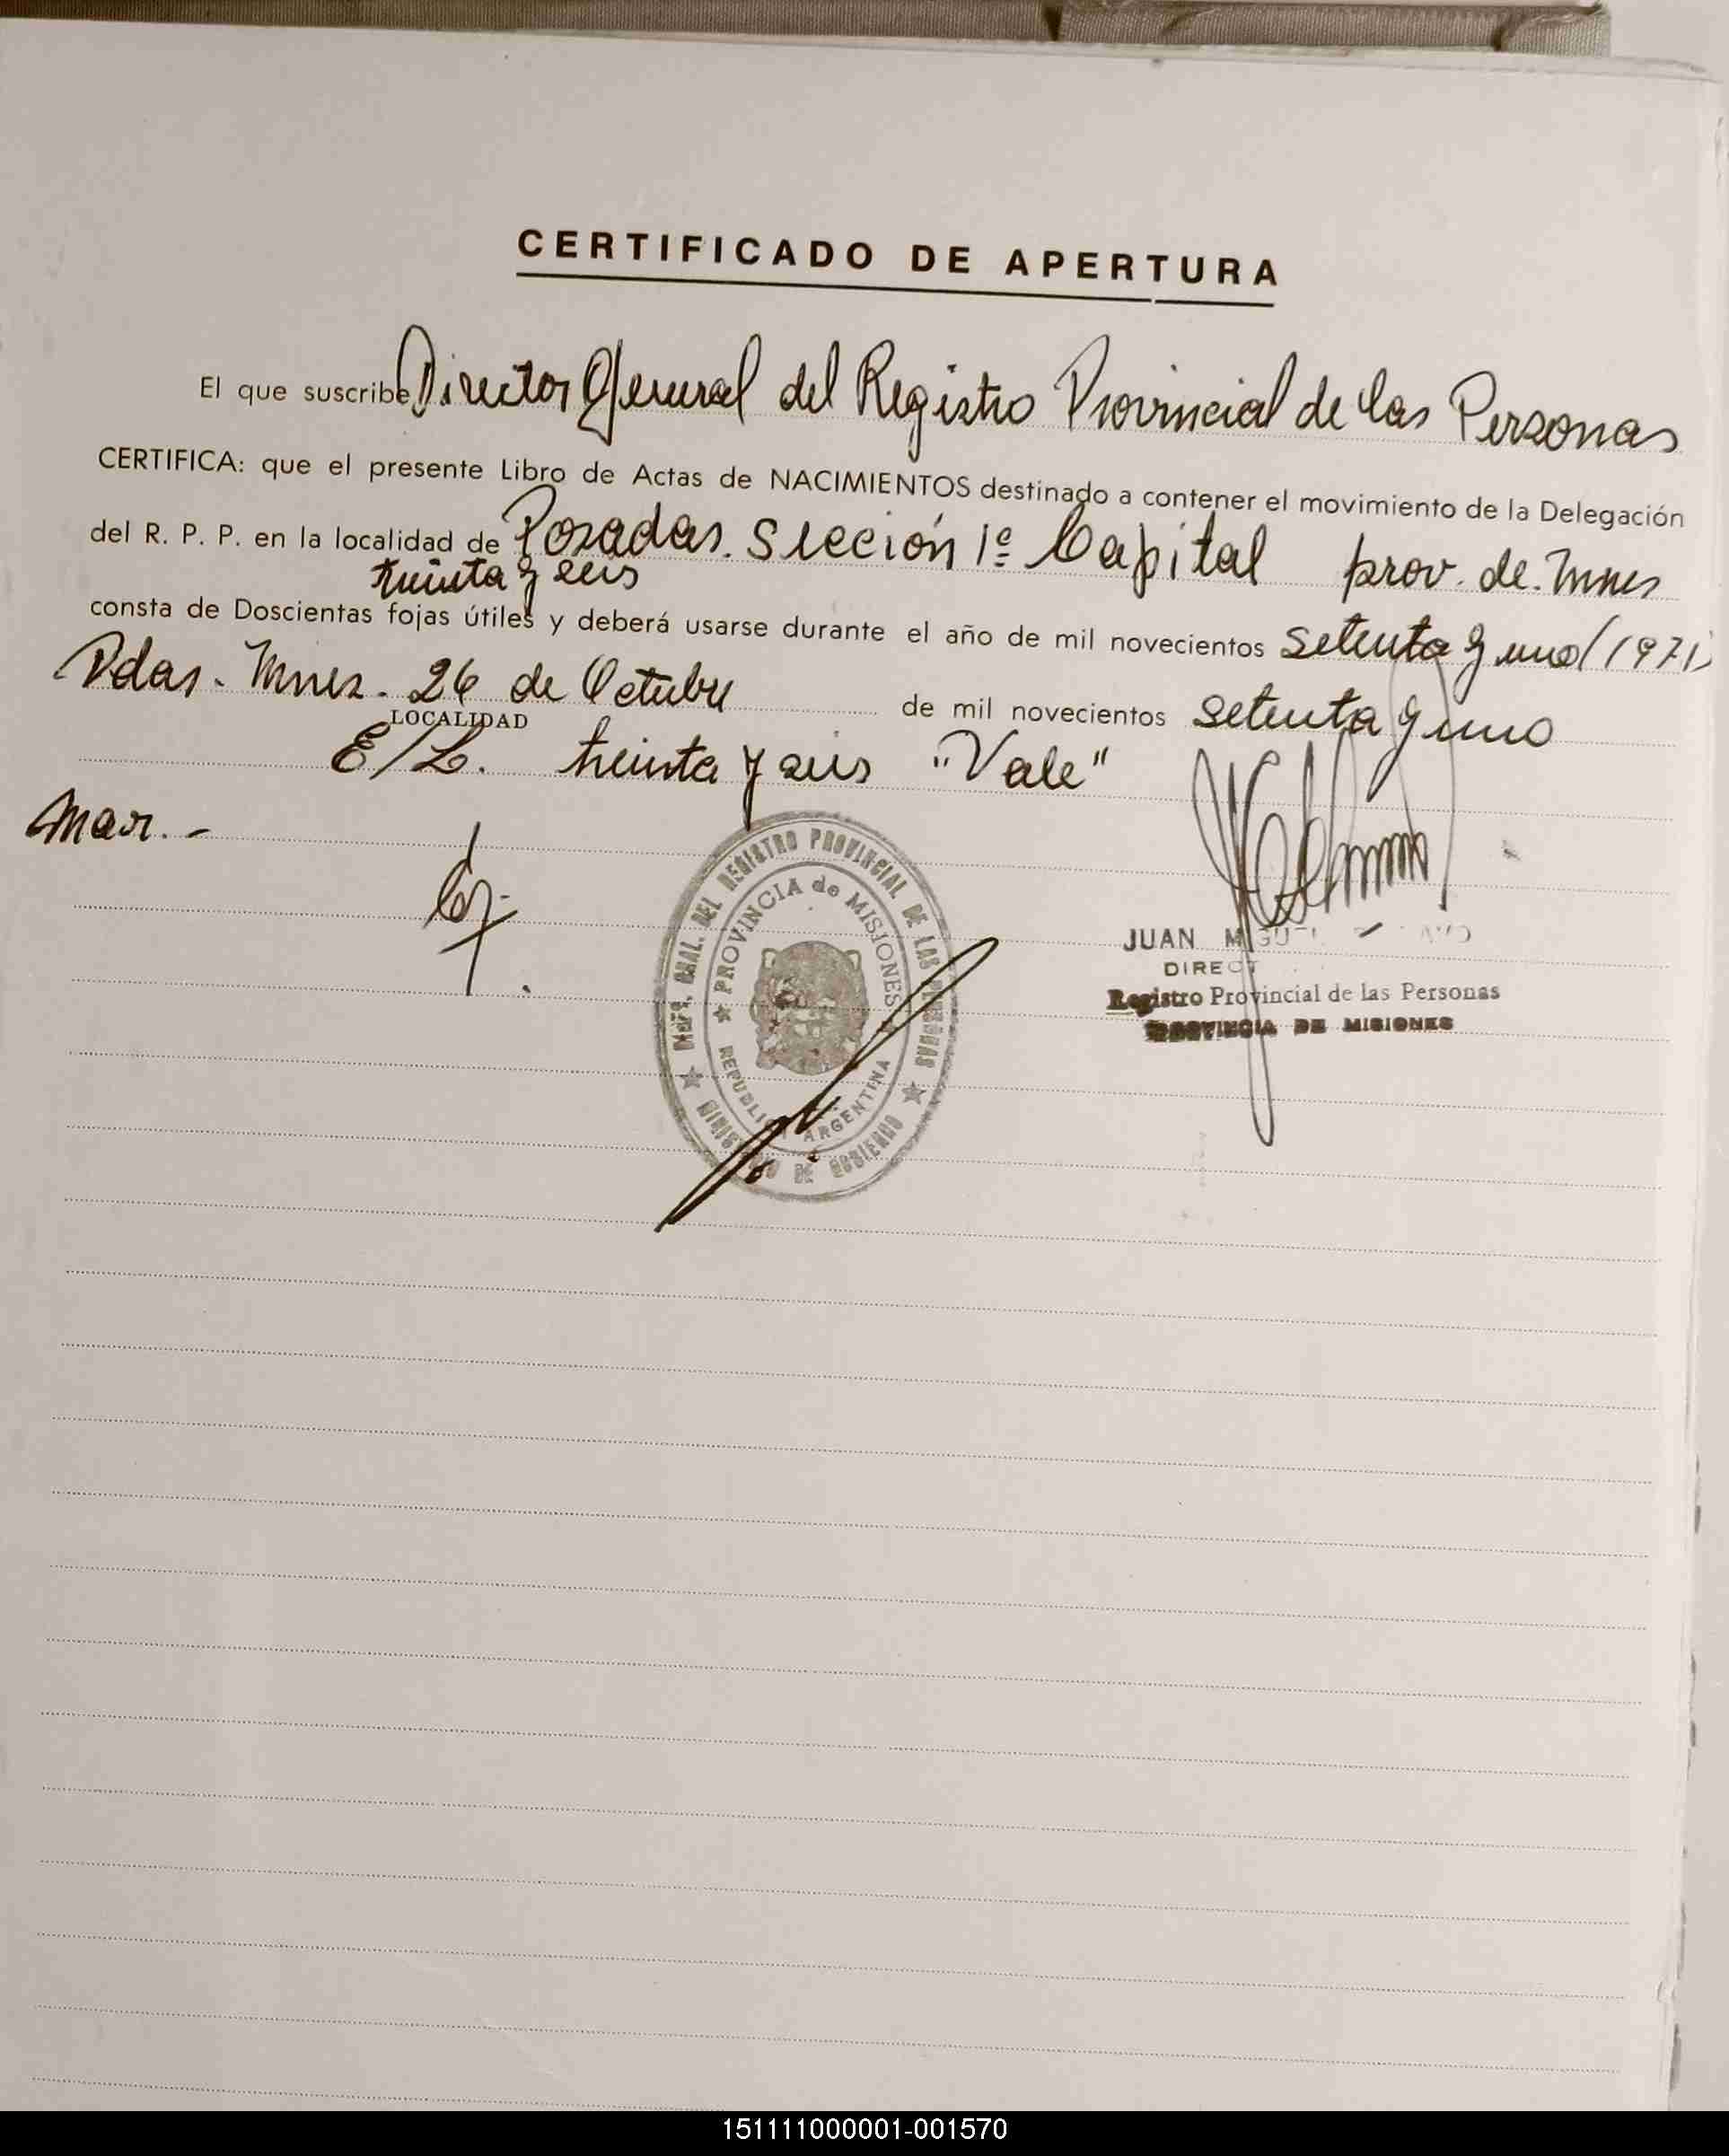 CERTIFICADO DE APERTURA
El que suscribe Director General del Registro Provincial de las Personas
CERTIFICA: que el presente Libro de Actas de NACIMIENTOS destinado a contener el movimiento de la Delegación
del R. P. P. en la localidad de Posadas. Sección 1º Capital prov. de Mnes
treinta y seis
consta de Doscientas fojas útiles y deberá usarse durante el año de mil novecientos setenta y uno (1971)
Pdas. Mnes. 26 de Octubre de mil novecientos setenta y uno
LOCALIDAD
E/L. treinta y seis "Vale"
Mar.-
DIREC. GRAL. DEL REGISTRO PROVINCIAL DE LAS PERSONAS
PROVINCIA de MISIONES
REPUBLICA ARGENTINA
MINISTERIO DE GOBIERNO
JUAN MIGUEL
DIRECT
Registro Provincial de las Personas
PROVINCIA DE MISIONES
151111000001-001570